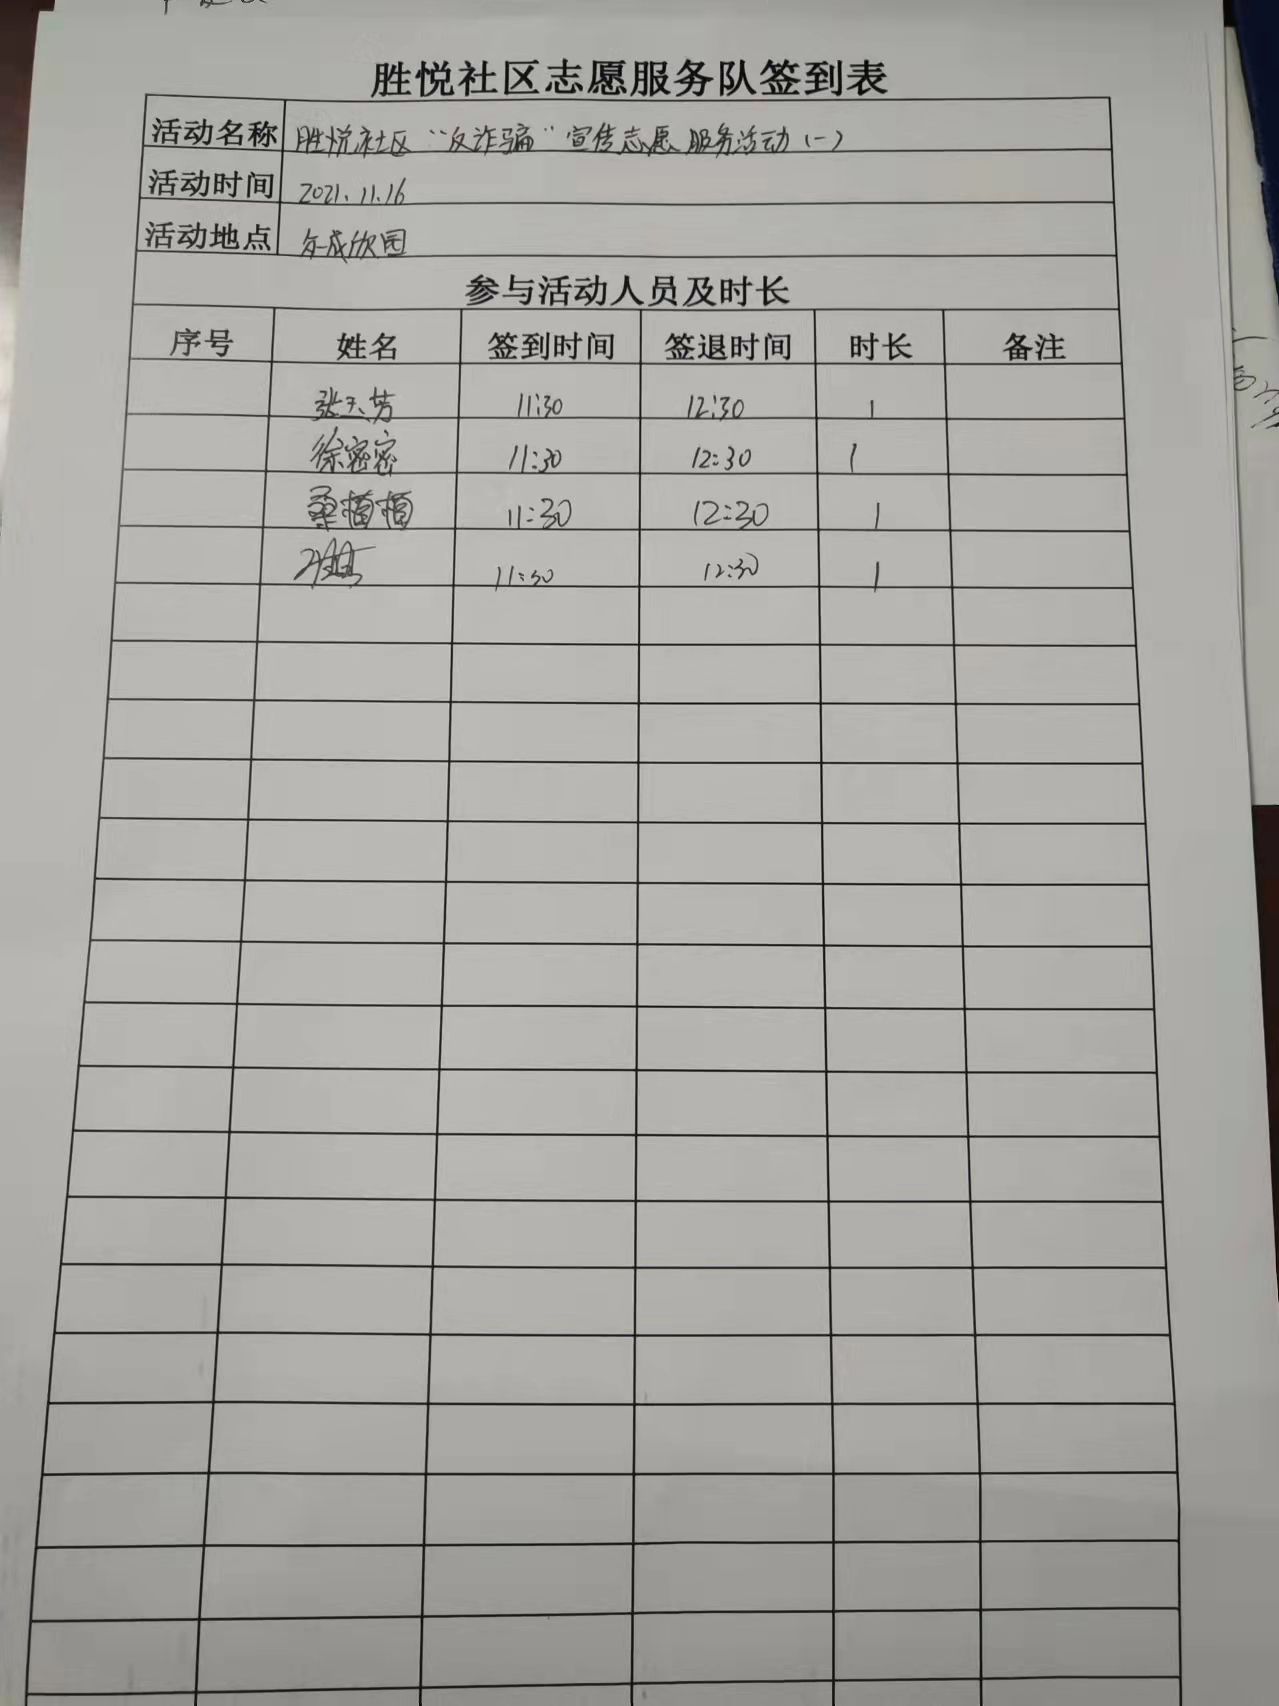 胜悦社区志愿服务队签到表
活动名称 胜悦社区“反诈骗”宣传志愿服务活动(一)
活动时间 2021.11.16
活动地点 年成欣园
参与活动人员及时长
序号 姓名 签到时间 签退时间 时长 备注
张玉芳 11:30 12:30 1
徐密密 11:30 12:30 1
桑植植 11:30 12:30 1
11:30 12:30 1